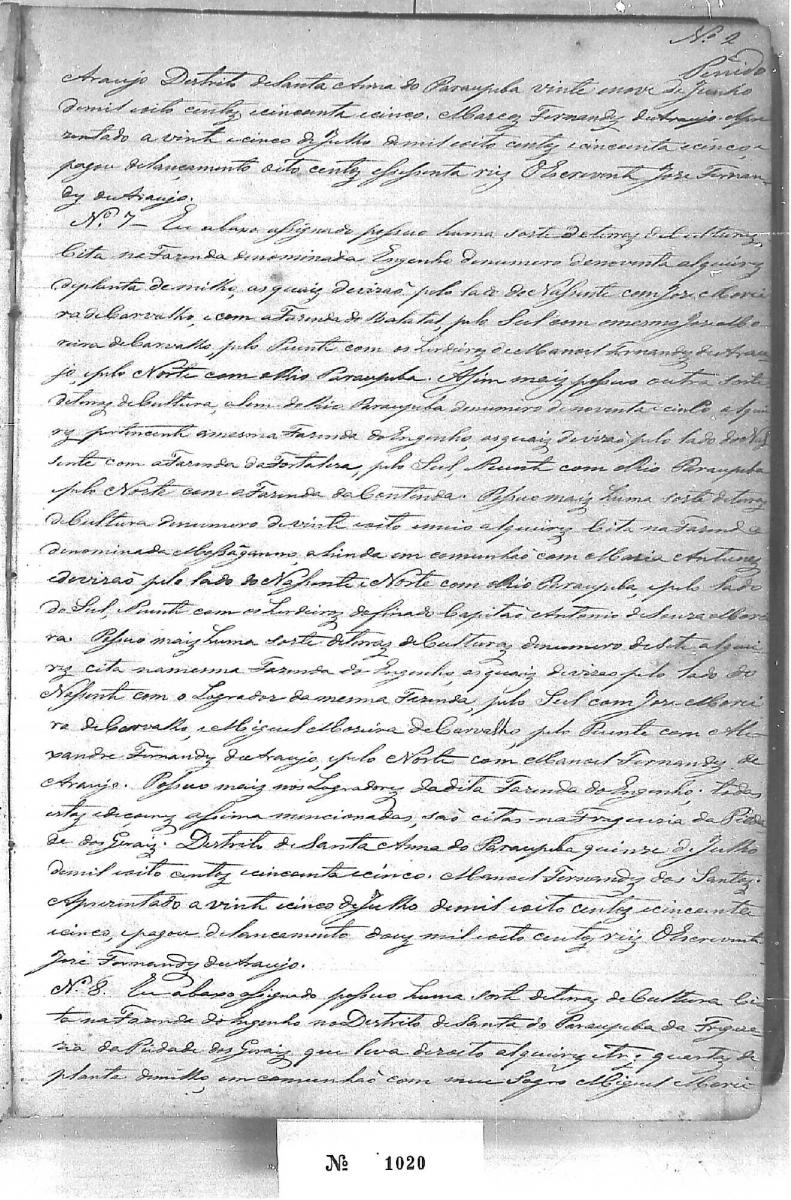 Nº 2
Penido
Araujo Destrito de Santa Anna do Paraupeba vinte enove de Junho
demil eoito centoz ecincoenta ecinco. Marcoz Fernandez de Araujo. Apre
zentado a vinte ecinco de Julho demil eoito centoz ecincoenta ecinco, e
pagou delancamento oito centoz essessenta riz O Escrevente Joze Fernan
dez de Araujo.
Nº 7 — Eu abaxo assignado possuo huma sorte deterraz deCulturaz,
Cita na Fazenda denominada Engenho denumero denoventa alqueirez
deplanta de milho, as quaiz devizaõ pelo lado do Nassente com Joze Morei
ra de Carvalho, e com a Fazenda do Batatal, pelo Sul com omesmo Joze Mo
reira de Carvalho, pelo Puente com os Erdeiroz de Manoel Fernandez de Arau
jo, epelo Norte com oRio Paraupeba. Asim maiz possuo outra sorte
deterraz deCultura, alem doRio Paraupeba denumero denoventa ecinco, alquei
rez pertencente amesma Fazenda do Engenho, asquaiz devizaõ pelo lado do Nas
sente com a Fazenda da Fortaleza, pelo Sul, Puente com oRio Paraupeba
epelo Norte com aFazenda da Contenda. Possuo maiz huma sorte deterraz
deCultura denumero de vinte eoito emeio alqueirez Cita na Fazenda
denominada Massãganno ahinda em comunhaõ com Maria Antunez
edevizaõ pelo lado do Nassente e Norte com oRio Paraupeba, epelo lado
do Sul, Puente com os Erdeiroz do finado Capitaõ Antonio de Souza Morei
ra. Possuo maiz huma sorte deterraz de Culturaz denumero de sete alquei
rez cita namesma Fazenda do Engenho as quaiz devizaõ pelo lado do
Nassente com o Logrador da mesma Fazenda, pelo Sul com Joze Morei
ra de Carvalho, e Miguel Moreira de Carvalho, pelo Puente com Ale
xandre Fernandez de Araujo, epelo Norte com Manoel Fernandez de
Araujo. Possuo maiz nos Logradorez da dita Fazenda do Engenho. todas
estaz assima mencionadas, saõ citas na Freguezia da Pieda
de dos Geraiz. Destrito de Santa Anna do Paraupeba quinze de Julho
demil eoito centoz ecincoenta ecinco. Manoel Fernandez dos Santoz.
Aprezentado a vinte ecinco de Julho demil eoito centoz ecincoenta
ecinco, epagou delancamento douz mil eoito centoz riz O Escrevente
Joze Fernandez de Araujo.
Nº 8. Eu abaxo assignado possuo huma sorte deterraz de Cultura Ci
ta na Fazenda do Engenho no Destrito de Santa do Paraupeba da Fregue
zia da Piedade dos Geraiz que leva dezoito alqueirez e trez quartaz de
planta demilho, em comunhaõ com meu Sogro Miguel Morei
Nº 1020